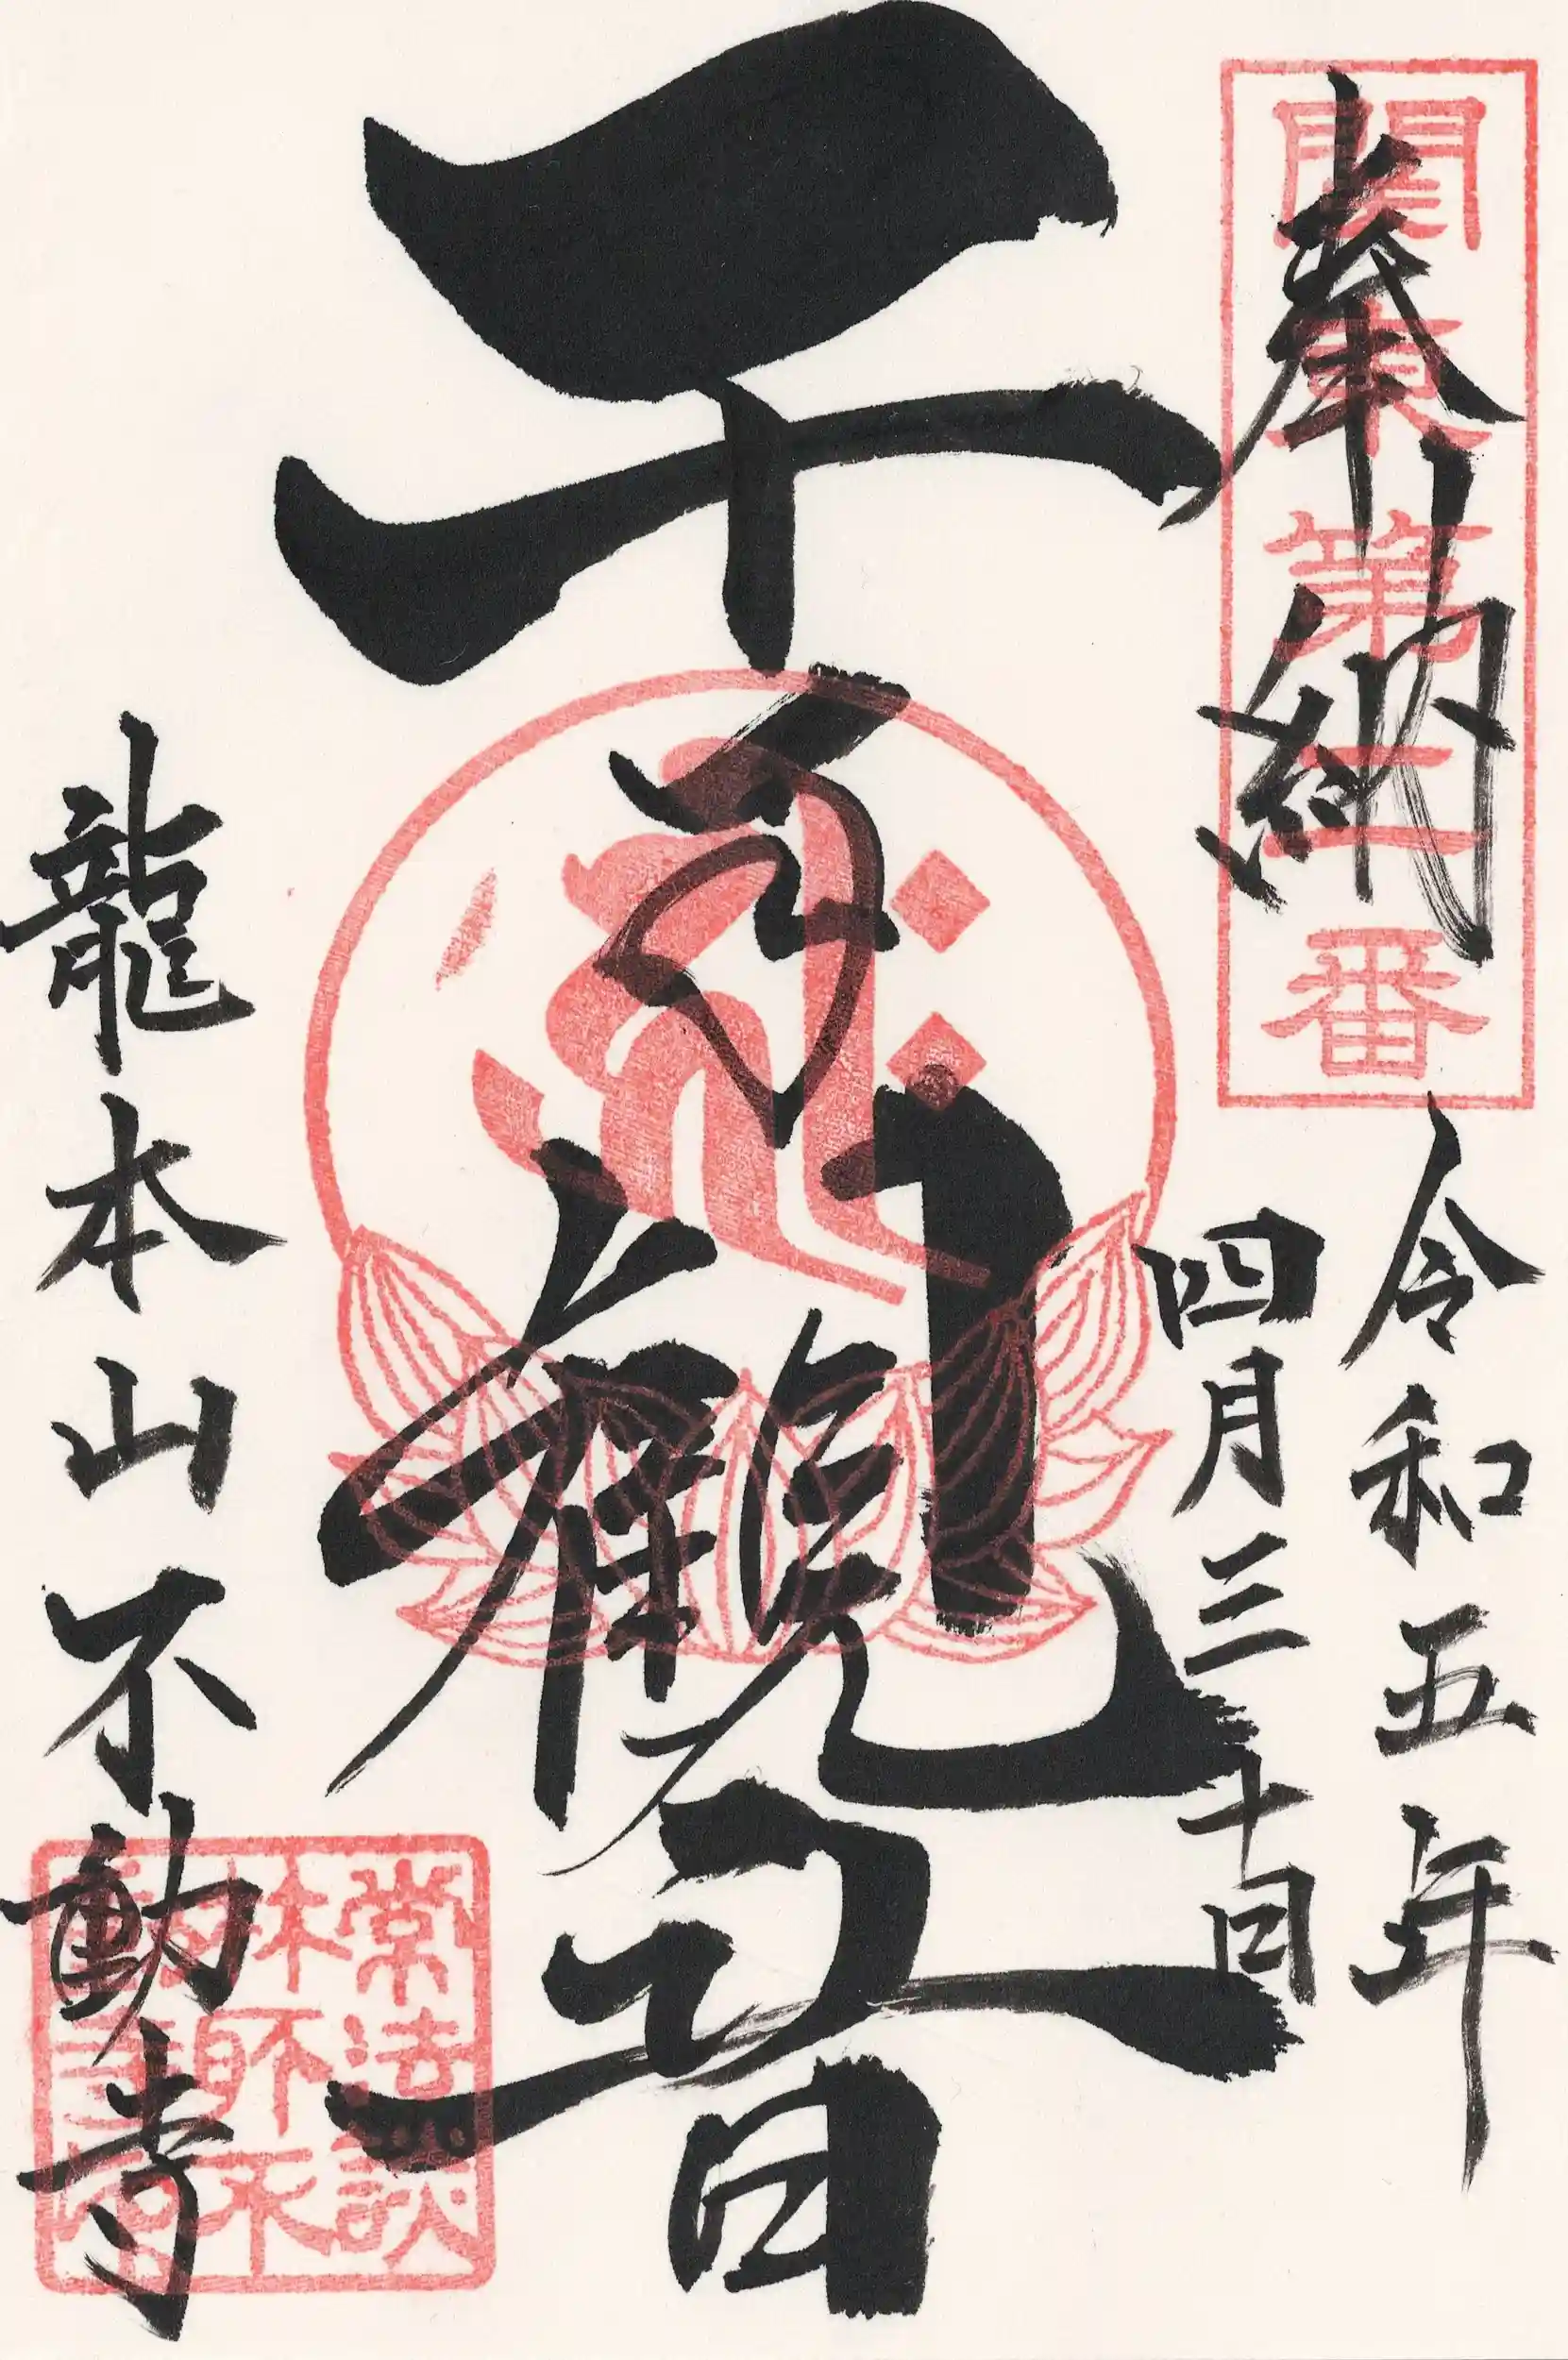 奉納
關東第二番
令和五年
四月三十日
千手観音
龍本山不動寺
常法談
林所不
動寺